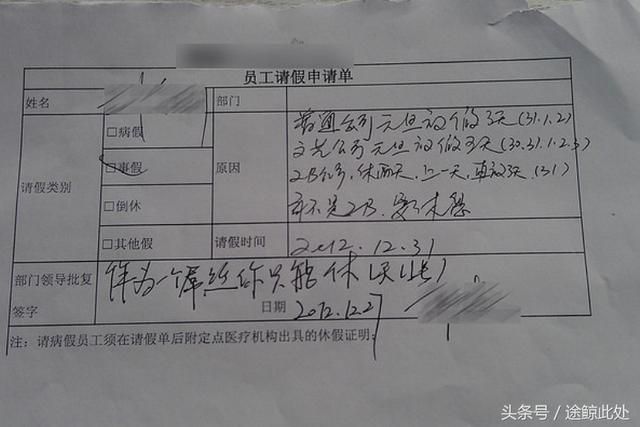 员工请假申请单
姓名 部门
□病假 普通公司元旦放假3天(31.1.2)
文艺公司元旦放假 天(30.31.1.2.3)
□事假 2B公司,休两天,上一天,再 天(31)
请假类别 原因
□倒休 不是2B,要休息
□其他假 请假时间 2012.12.31
部门领导批复 作为一个屌丝你只能休
签字 日期 2012.12.27
注:请病假员工须在请假单后附定点医疗机构出具的休假证明;
头条号/途鲸此处